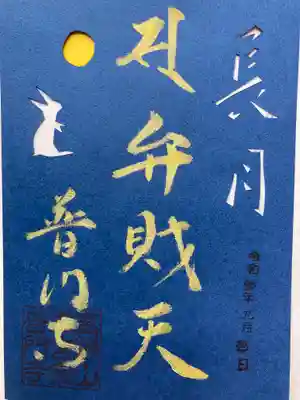 長月
令和四年九月吉日
弁財天
普門寺